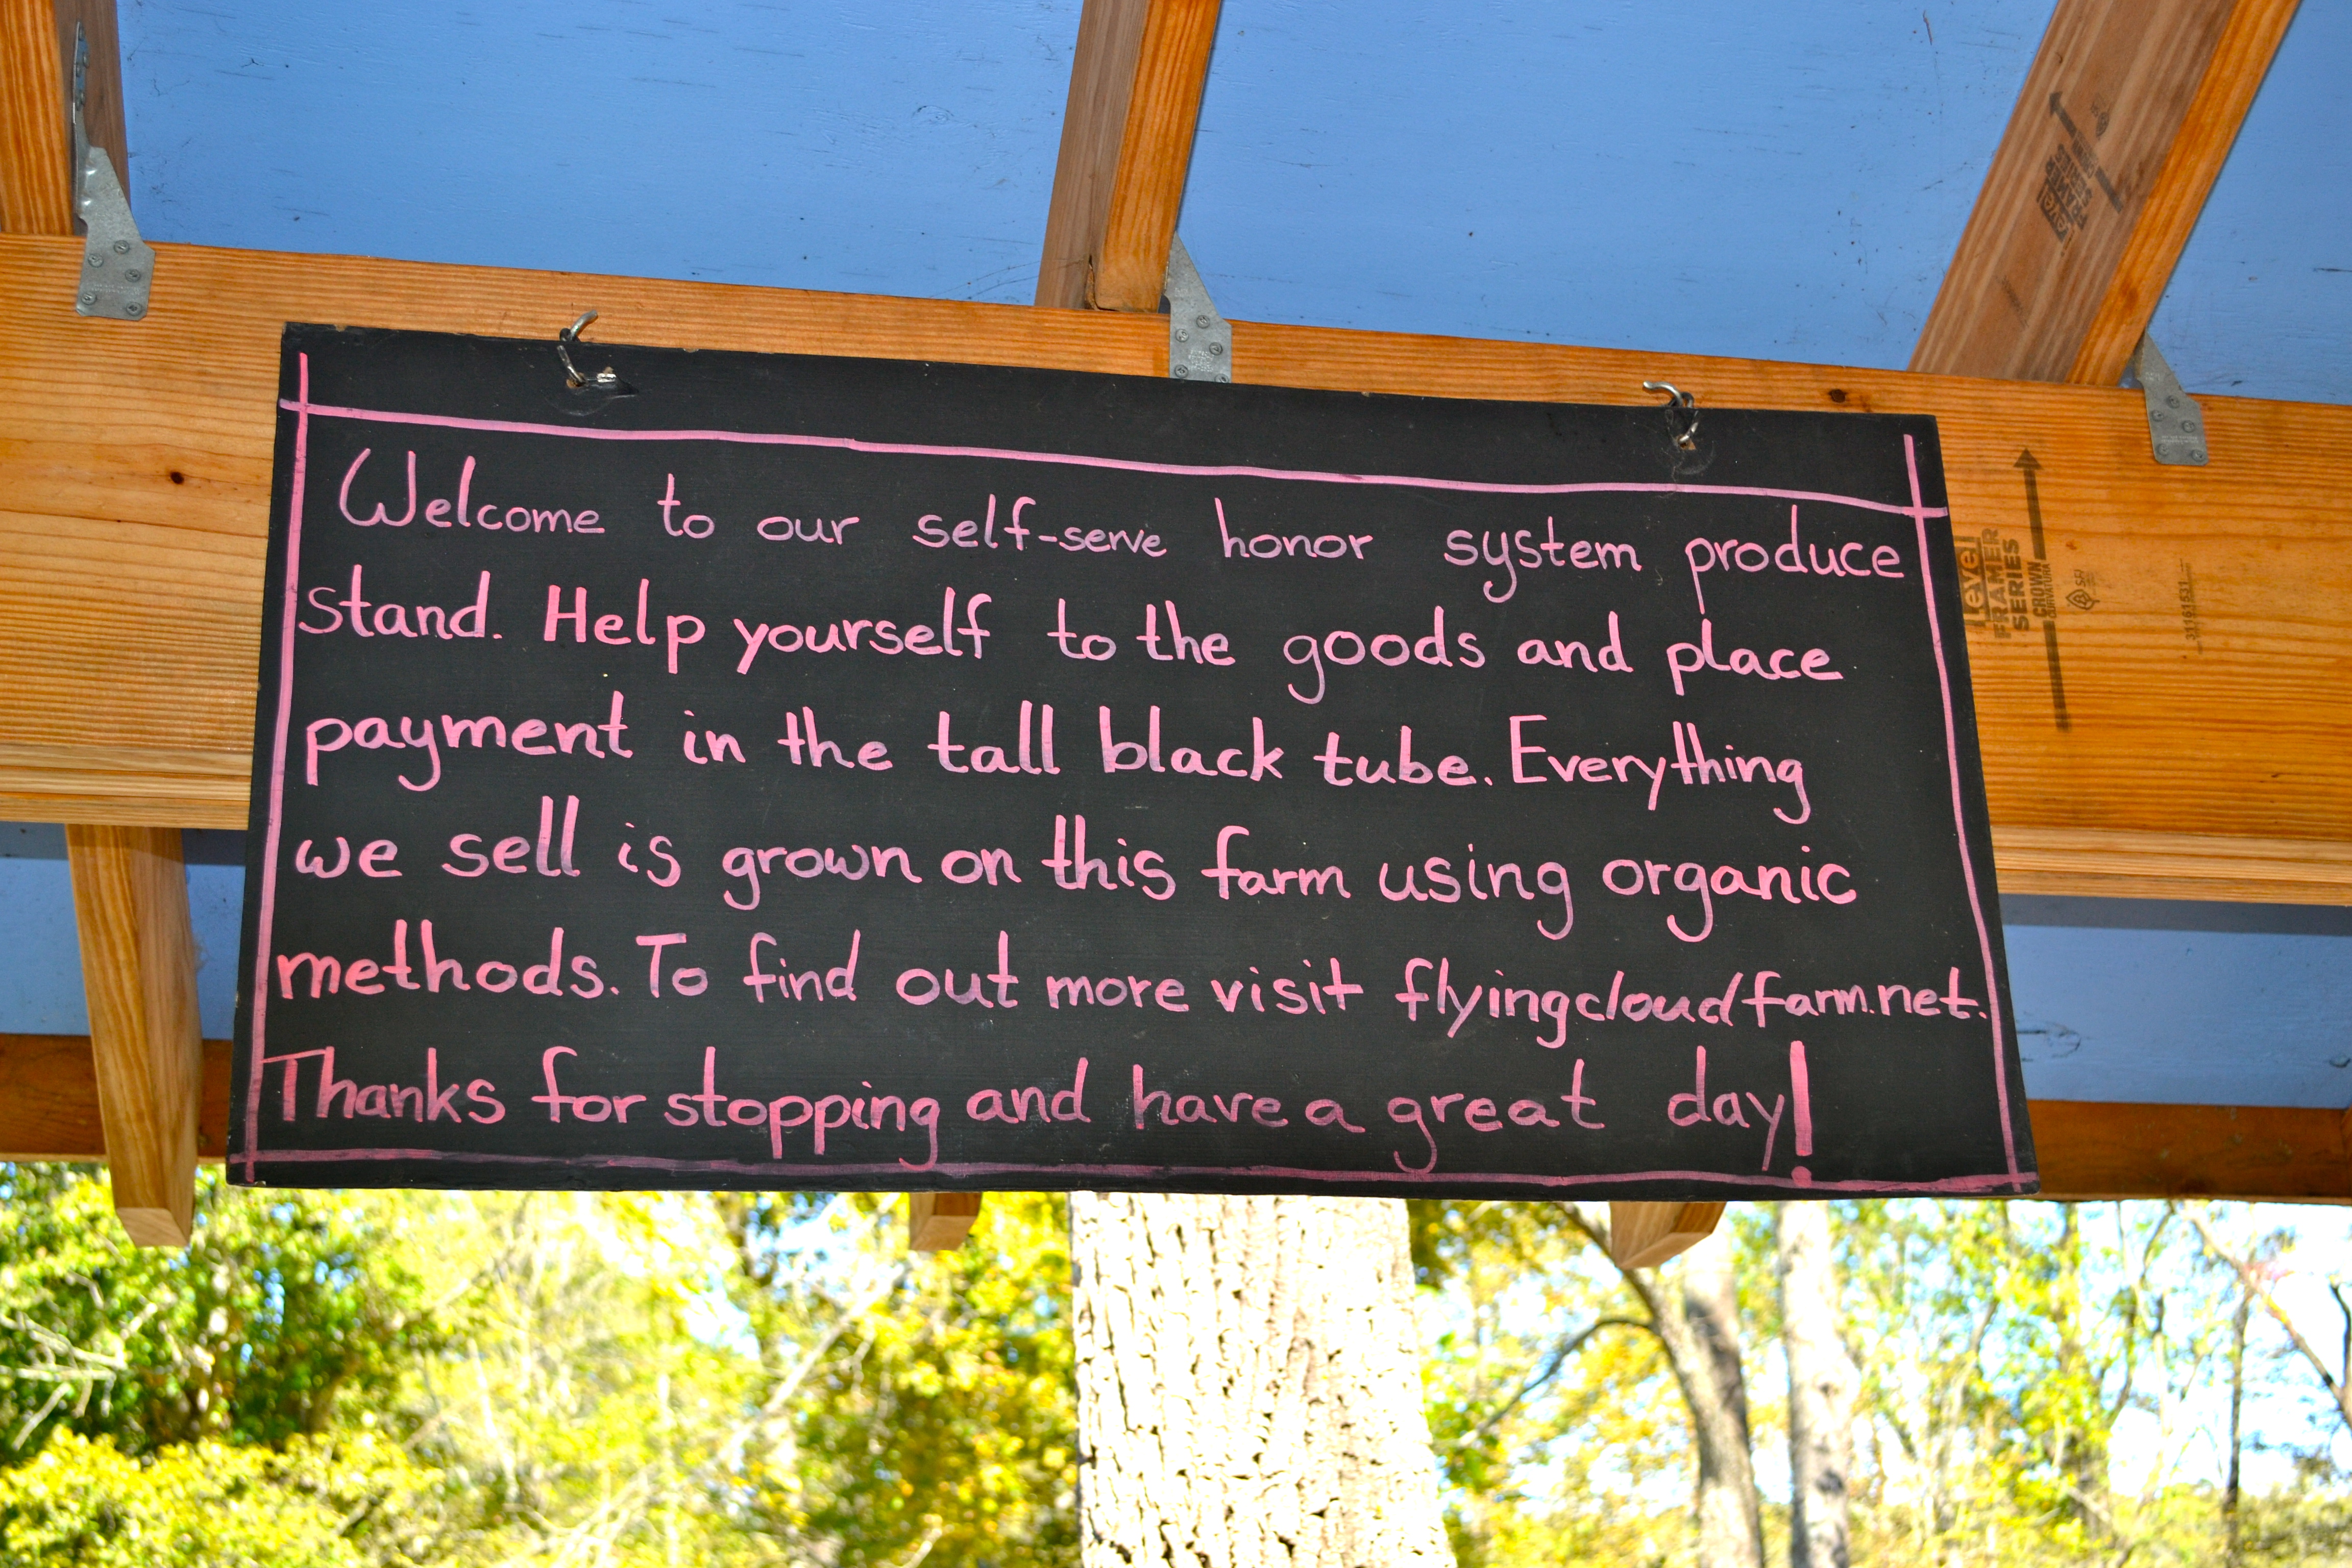 Welcome to our self-serve honor system produce
stand. Help yourself to the goods and place
payment in the tall black tube. Everything
we sell is grown on this farm using organic
methods. To find out more visit flyingcloudfarm.net.
Thanks for stopping and have a great day!
Level
FRAMER
SERIES
CROWN
SFI
Level
FRAMER
SERIES